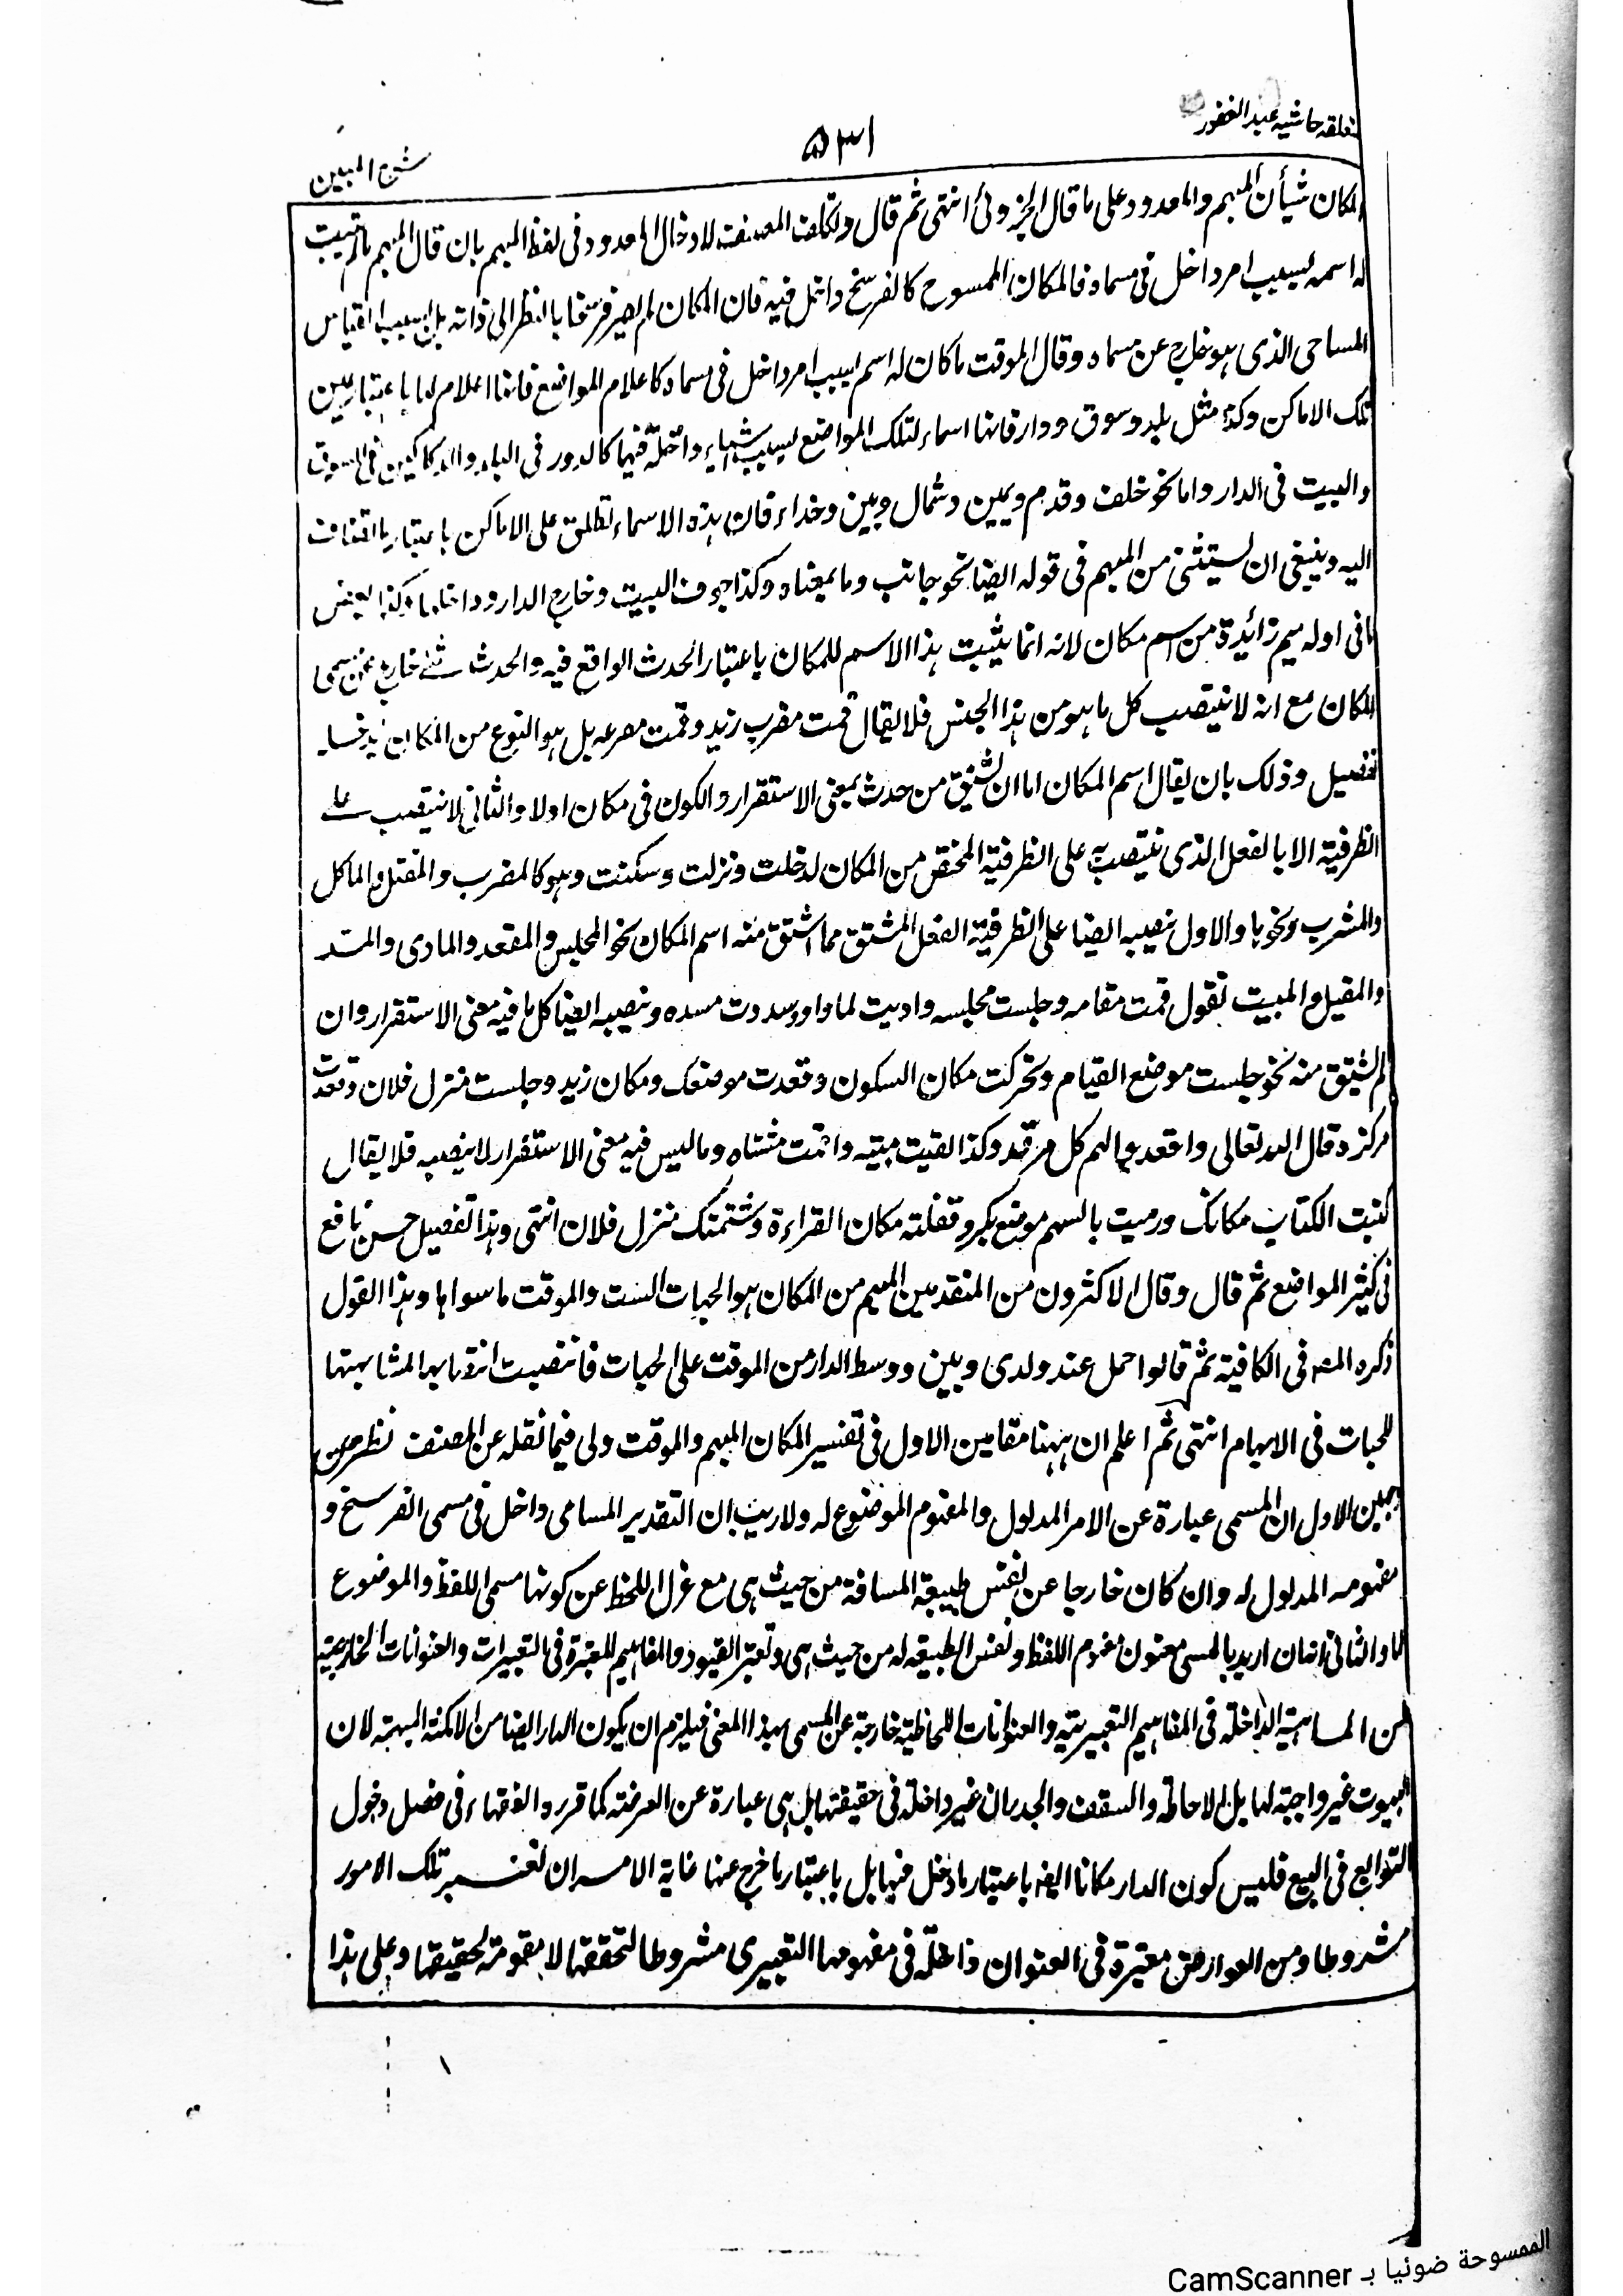 متعلقہ حاشیہ عبد الغفور
۵۳۱
شرح المبین
المکان شیأن المبہم والمعدود علی ما قال الجزولی انتہی ثم قال وتکلف المصنف لادخال المعدود فی لفظ المبہم بان قال المبہم ما ثبت
لہ اسمہ بسبب امر داخل فی مسماہ فالمکان الممسوح کالفرسخ داخل فیہ فان المکان لم یصر فرسخا بالنظر الی ذاتہ بل بسبب القیاس
المساحی الذی ہو خارج عن مسماہ وقال الموقت ما کان لہ اسم بسبب امر داخل فی مسماہ کاعلام المواضع فانہا اعلام لہا باعتبار عین
تلک الاماکن وکذا مثل بلد وسوق ودار فانہا اسماء لتلک المواضع بسبب اشیاء داخلۃ فیہا کالدور فی البلد والدکاکین فی السوق
والبیت فی الدار واما نحو خلف وقدم ویمین وشمال وبین وحذاء فان ہذہ الاسماء تطلق علی الاماکن باعتبار ما تضاف
الیہ وینبغی ان یستثنی من المبہم فی قولہ ایضا نحو جانب وما بمعناہ وکذا جوف البیت وخارج الدار وداخلہا وکذا بعض
ما فی اولہ میم زائدة من اسم مکان لانہ انما یثبت ہذا الاسم للمکان باعتبار الحدث الواقع فیہ والحدث شئ خارج عن مسمی
المکان مع انہ لا ینتصب کل ما ہو من ہذا الجنس فلا یقال قمت مضرب زید وقمت مصرعہ بل ہو النوع من المکان یدخلہ
تفصیل وذلک بان یقال اسم المکان اما ان یشتق من حدث بمعنی الاستقرار والکون فی مکان اولا والثانی لا ینتصب علی
الظرفیۃ الا بالفعل الذی ینتصب بہ علی الظرفیۃ المختص من المکان لدخلت ونزلت وسکنت وہو کالمضرب والمقتل والماکل
والمشرب ونحوہا والاول ینصبہ ایضا علی الظرفیۃ الفعل المشتق مما اشتق منہ اسم المکان نحو المجلس والمقعد والماوی والمسد
والمقیل والمبیت تقول قمت مقامہ وجلست مجلسہ واویت لماواہ وسددت مسدہ وینصبہ ایضا کل ما فیہ معنی الاستقرار وان
لم یشتق منہ نحو جلست موضع القیام وتحرکت مکان السکون وقعدت موضعک ومکان زید وجلست منزل فلان وقعدت
مرکزہ قال اللہ تعالی واقعدوا لہم کل مرصد وکذا لقیت مبیتہ واقمت مشتاہ وما لیس فیہ معنی الاستقرار لا ینصبہ فلا یقال
کتبت الکتاب مکانک ورمیت بالسہم موضع بکر وقتلتہ مکان القراءة وشتمتک منزل فلان انتہی وہذا تفصیل حسن نافع
فی کثیر المواضع ثم قال وقال الاکثرون من المتقدمین المبہم من المکان ہو الجہات الست والموقت ما سواہا وہذا القول
ذکرہ المصہ فی الکافیۃ ثم قالوا حمل عند ولدی وبین ووسط الدار من الموقت علی الجہات فانتصبت انتصابہا لمشابہتہا
للجہات فی الابہام انتہی ثم اعلم ان ہہنا مقامین الاول فی تفسیر المکان المبہم والموقت ولی فیما نقلہ عن المصنف نظر من
وجہین الاول ان المسمی عبارة عن الامر المدلول والمفہوم الموضوع لہ ولا ریب ان التقدیر المساحی داخل فی مسمی الفرسخ و
مفہومہ المدلول لہ وان کان خارجا عن نفس طبیعۃ المسافۃ من حیث ہی مع عزل اللحظ عن کونہا مسمی اللفظ والموضوع
لہا والثانی انہ ان ارید بالمسمی معنون مفہوم اللفظ ونفس الطبیعۃ لہ من حیث ہی وتعتبر القیود والمفاہیم المعتبرة فی التعبیرات والعنوانات الخارجیۃ
من الماہیۃ الداخلۃ فی المفاہیم التعبیریۃ والعنوانات اللحاظیۃ خارجۃ عن المسمی بہذا المعنی فیلزم ان یکون الدار ایضا من الامکنۃ المبہمۃ لان
البیوت غیر واجبۃ لہا بل الاحاطۃ والسقف والجدران غیر داخلۃ فی حقیقتہا بل ہی عبارة عن العرصۃ کما قررہ الفقہاء فی فصل دخول
التوابع فی البیع فلیس کون الدار مکانا ایضا باعتبار ما دخل فیہا بل باعتبار ما خرج عنہا غایۃ الامر ان تعتبر تلک الامور
مشروطا ومن العوارض معتبرة فی العنوان داخلۃ فی مفہومہا التعبیری مشروطا لتحققہا لا مقومۃ لحقیقتہا وعلی ہذا
الممسوحة ضوئيا بـ CamScanner